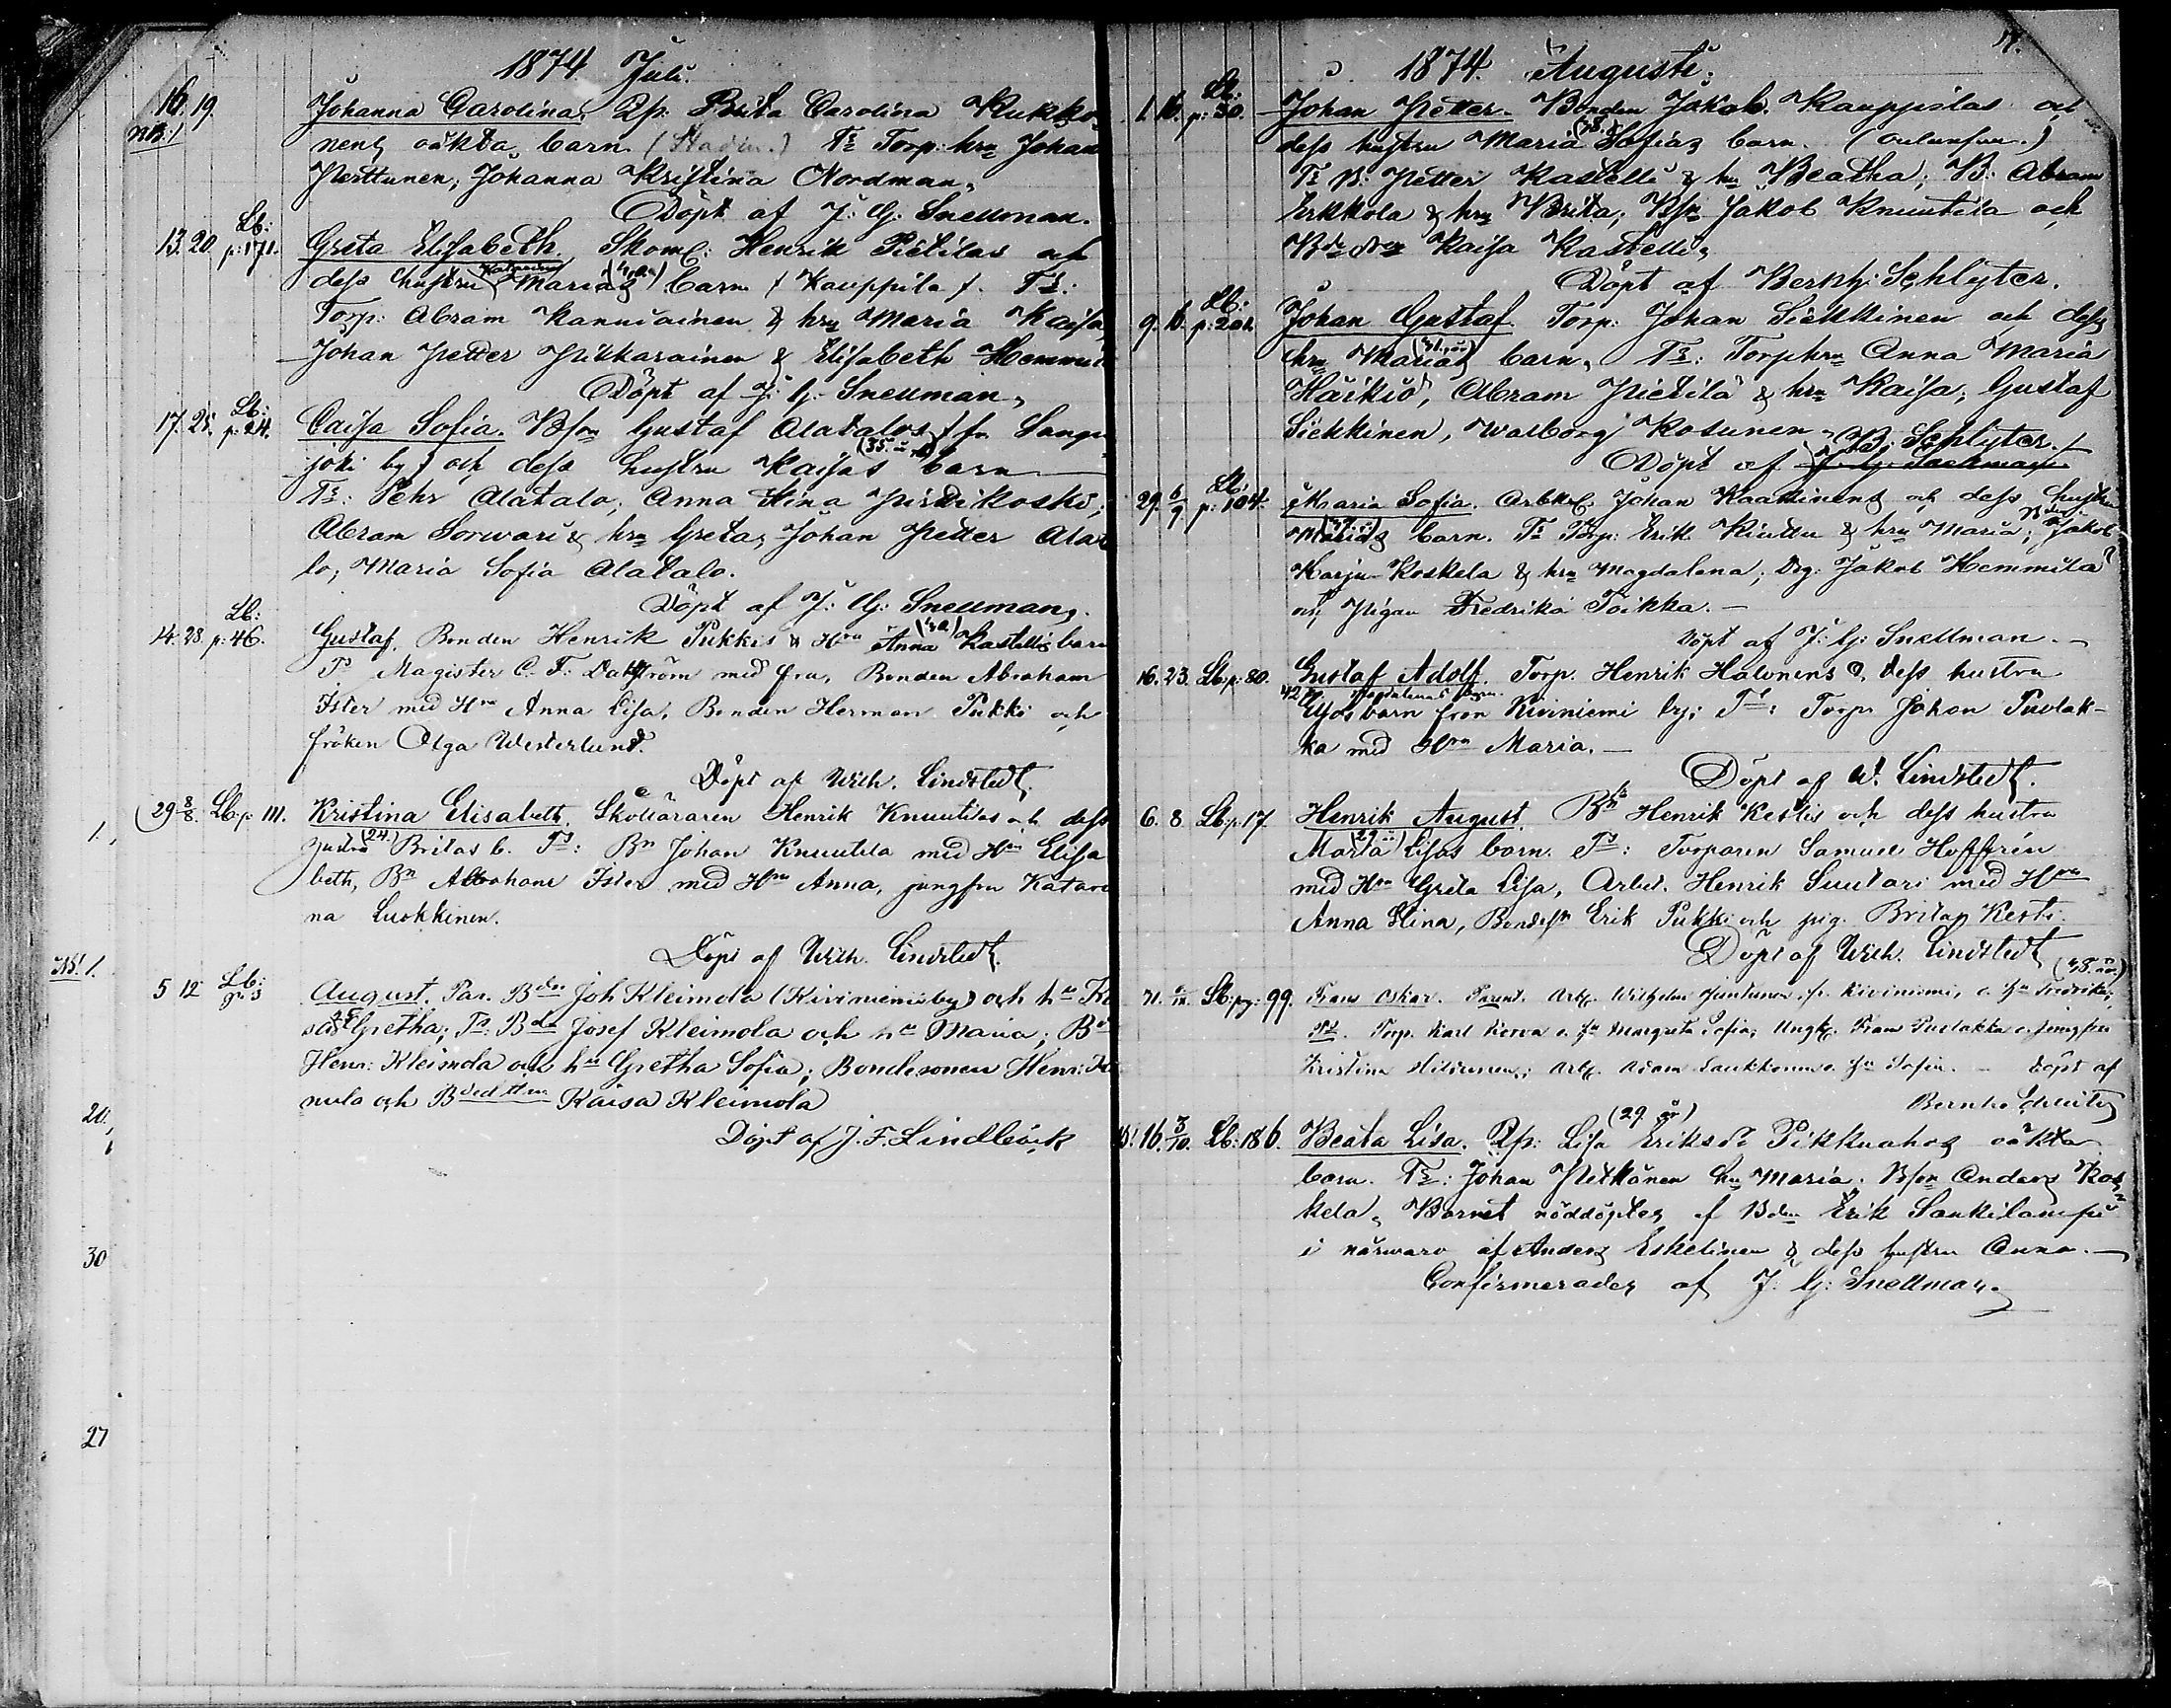 1874 Juli.
16. 19. Johanna Carolina, Qp. Brita Carolina Kukko-
NB! nens oäkta barn. (Stadin.) Ts Torp: hru Johan
Perttunen, Johanna Kristina Nordman.
Döpt af J: G: Snellman.
13. 20. Lb: p: 171. Greta Elisabeth. Skom: Henrik Pietilas och
dess hustru Marias barn Kauppila. Ts:
Torp: Abram Kanniainen & hru Maria Kaisa,
Johan Petter Pikkarainen & Elisabeth Hemmi
Döpt af J: G: Snellman.
17. 25. Lb: p: 24. Caisa Sofia. Bson Gustaf Alatalos fr Sangi
joki by och dess hustru Kaisas (35. år) barn
Ts: Pehr Alatalo, Anna Stina Pirttikoski;
Abram Sorwari & hru Greta, Johan Petter Alata
lo, Maria Sofia Alatalo.
Döpt af J: G: Snellman.
14. 28. Lb: p: 46. Gustaf. Bonden Henrik Pukkis & Hru Anna Kastellis barn
Ts Magister C. F. Dahlström med fru, Bonden Abraham
Ister med Hru Anna Lisa, Bonden Herman Pukki och
fröken Olga Westerlund.
Döpt af Wilh. Lindstedt.
29 8/8. Lb: p: 111. Kristina Elisabeth. Skolläraren Henrik Knuutilas och dess
hustru (24.) Britas b. Ts: Bn Johan Knuutila med Hru Elisa
beth, Bn Abraham Ister med Hru Anna, jungfru Katari
na Luokkinen.
Döpt af Wilh. Lindstedt.
NB! 1.
5 12 Lb: August. Par. Bden Joh Kleimola (Kiviniemi by) och hu
Gretha; Ts: Bdn Josef Kleimola och hu Maria; Bd
Henr: Kleimola och hu Gretha Sofia; Bondesonen Henr:
mula och Bdedttren Kaisa Kleimola
Döpt af J. F. Lindbäck
20.
30
27
1874. Augusti.
1. 16. Lb: p: 50. Johan Petter. Bonden Jakob Kauppilas och
dess hustru Maria Sofias barn.
Ts B: Petter Kastelli & hru Beatha; B: Abram
Erkkola & hru Brita; Bson Jakob Knuutila och
Bdr Kaisa Kastelli.
Döpt af Bernh: Schlyter.
9. 16. Lb: p: 201. Johan Gustaf. Torp: Johan Siekkinen och dess
hru Marias barn, Ts: Torphru Anna Maria
Härkiö, Abram Pietilä & hru Kaisa, Gustaf
Siekkinen, Walborg Kosunen. B: Schlyter.
Döpt af J: G: Snellman
29. 6/9 Lb: p: 104. Maria Sofia. Arbk. Johan Kaakinens och dess hustru
Marias barn. Ts Torp: Erik Kinttu & hru Maria; Jakob
Harju-Koskela & hru Magdalena, Drg: Jakob Hemmilä
och Pigan Fredrika Toikka.
Döpt af J: G: Snellman.
16. 23. Lb: p: 80. Gustaf Adolf. Torp. Henrik Halonens & dess hustru
42 Magdalenas barn
barn från Kiviniemi by; Ts: Torp. Johan Puolak-
ka med Hru Maria.
Döpt af W. Lindstedt.
6. 8 Lb: p: 17. Henrik August. Bn Henrik Kestis och dess hustru
Maria Lisas barn. Ts: Torparen Samuel Hoffrén
med Hru Greta Lisa, Arbet. Henrik Suutari med Hru
Anna Stina, Bondesn Erik Pukki och pig. Brita Kesti.
Döpt af Wilh. Lindstedt
31. Lb: pg: 99. Frans Oskar. Parent. Arb. Wilhelm Juntunen fr. Kiviniemi, o. hu Fredrika;
Ts. Torp. Karl Kerva o. hu Margreta Sofia; Ungk. Frans Puolakka o. jungfru
Kristina Hiltunen; Arb. Adam Laukkonen o. hu Sofia. Döpt af
Bernh. Schlyter
16. 3/10. Lb: 186. Beata Lisa. Qp: Lisa Eriksdr (29. år) Pikkuahos oäkta
barn. Ts: Johan Pelkonen hru Maria. Bson Anders Kos-
kela. Barnet nöddöptes af Bden Erik Sankilampi
i närwaro af Anders Eskelinen & dess hustru Anna.
Confirmerades af J: G: Snellman.